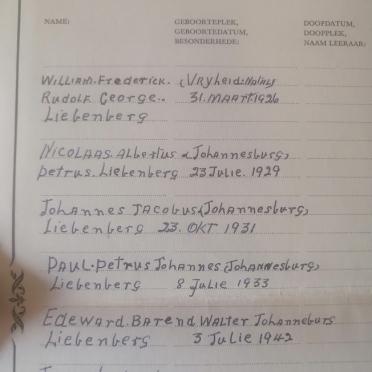 NAME: GEBOORTEPLEK, DOOPDATUM,
GEBOORTEDATUM, DOOPPLEK,
BESONDERHEDE: NAAM LERAAR:
William. Frederick. (Vryheid. Natal)
Rudolf George.. 31. MAART. 1926
Liebenberg
Nicolaas. Albertus (Johannesburg)
petrus. Liebenberg 23 Julie. 1929
Johannes JACobus (Johannesburg)
Liebenberg 23. OKT 1931
PAUL. Petrus Johannes (Johannesburg)
Liebenberg 8 Julie 1933
Edeward. Barend. Walter Johanneburg
Liebenberg 3 Julie 1942